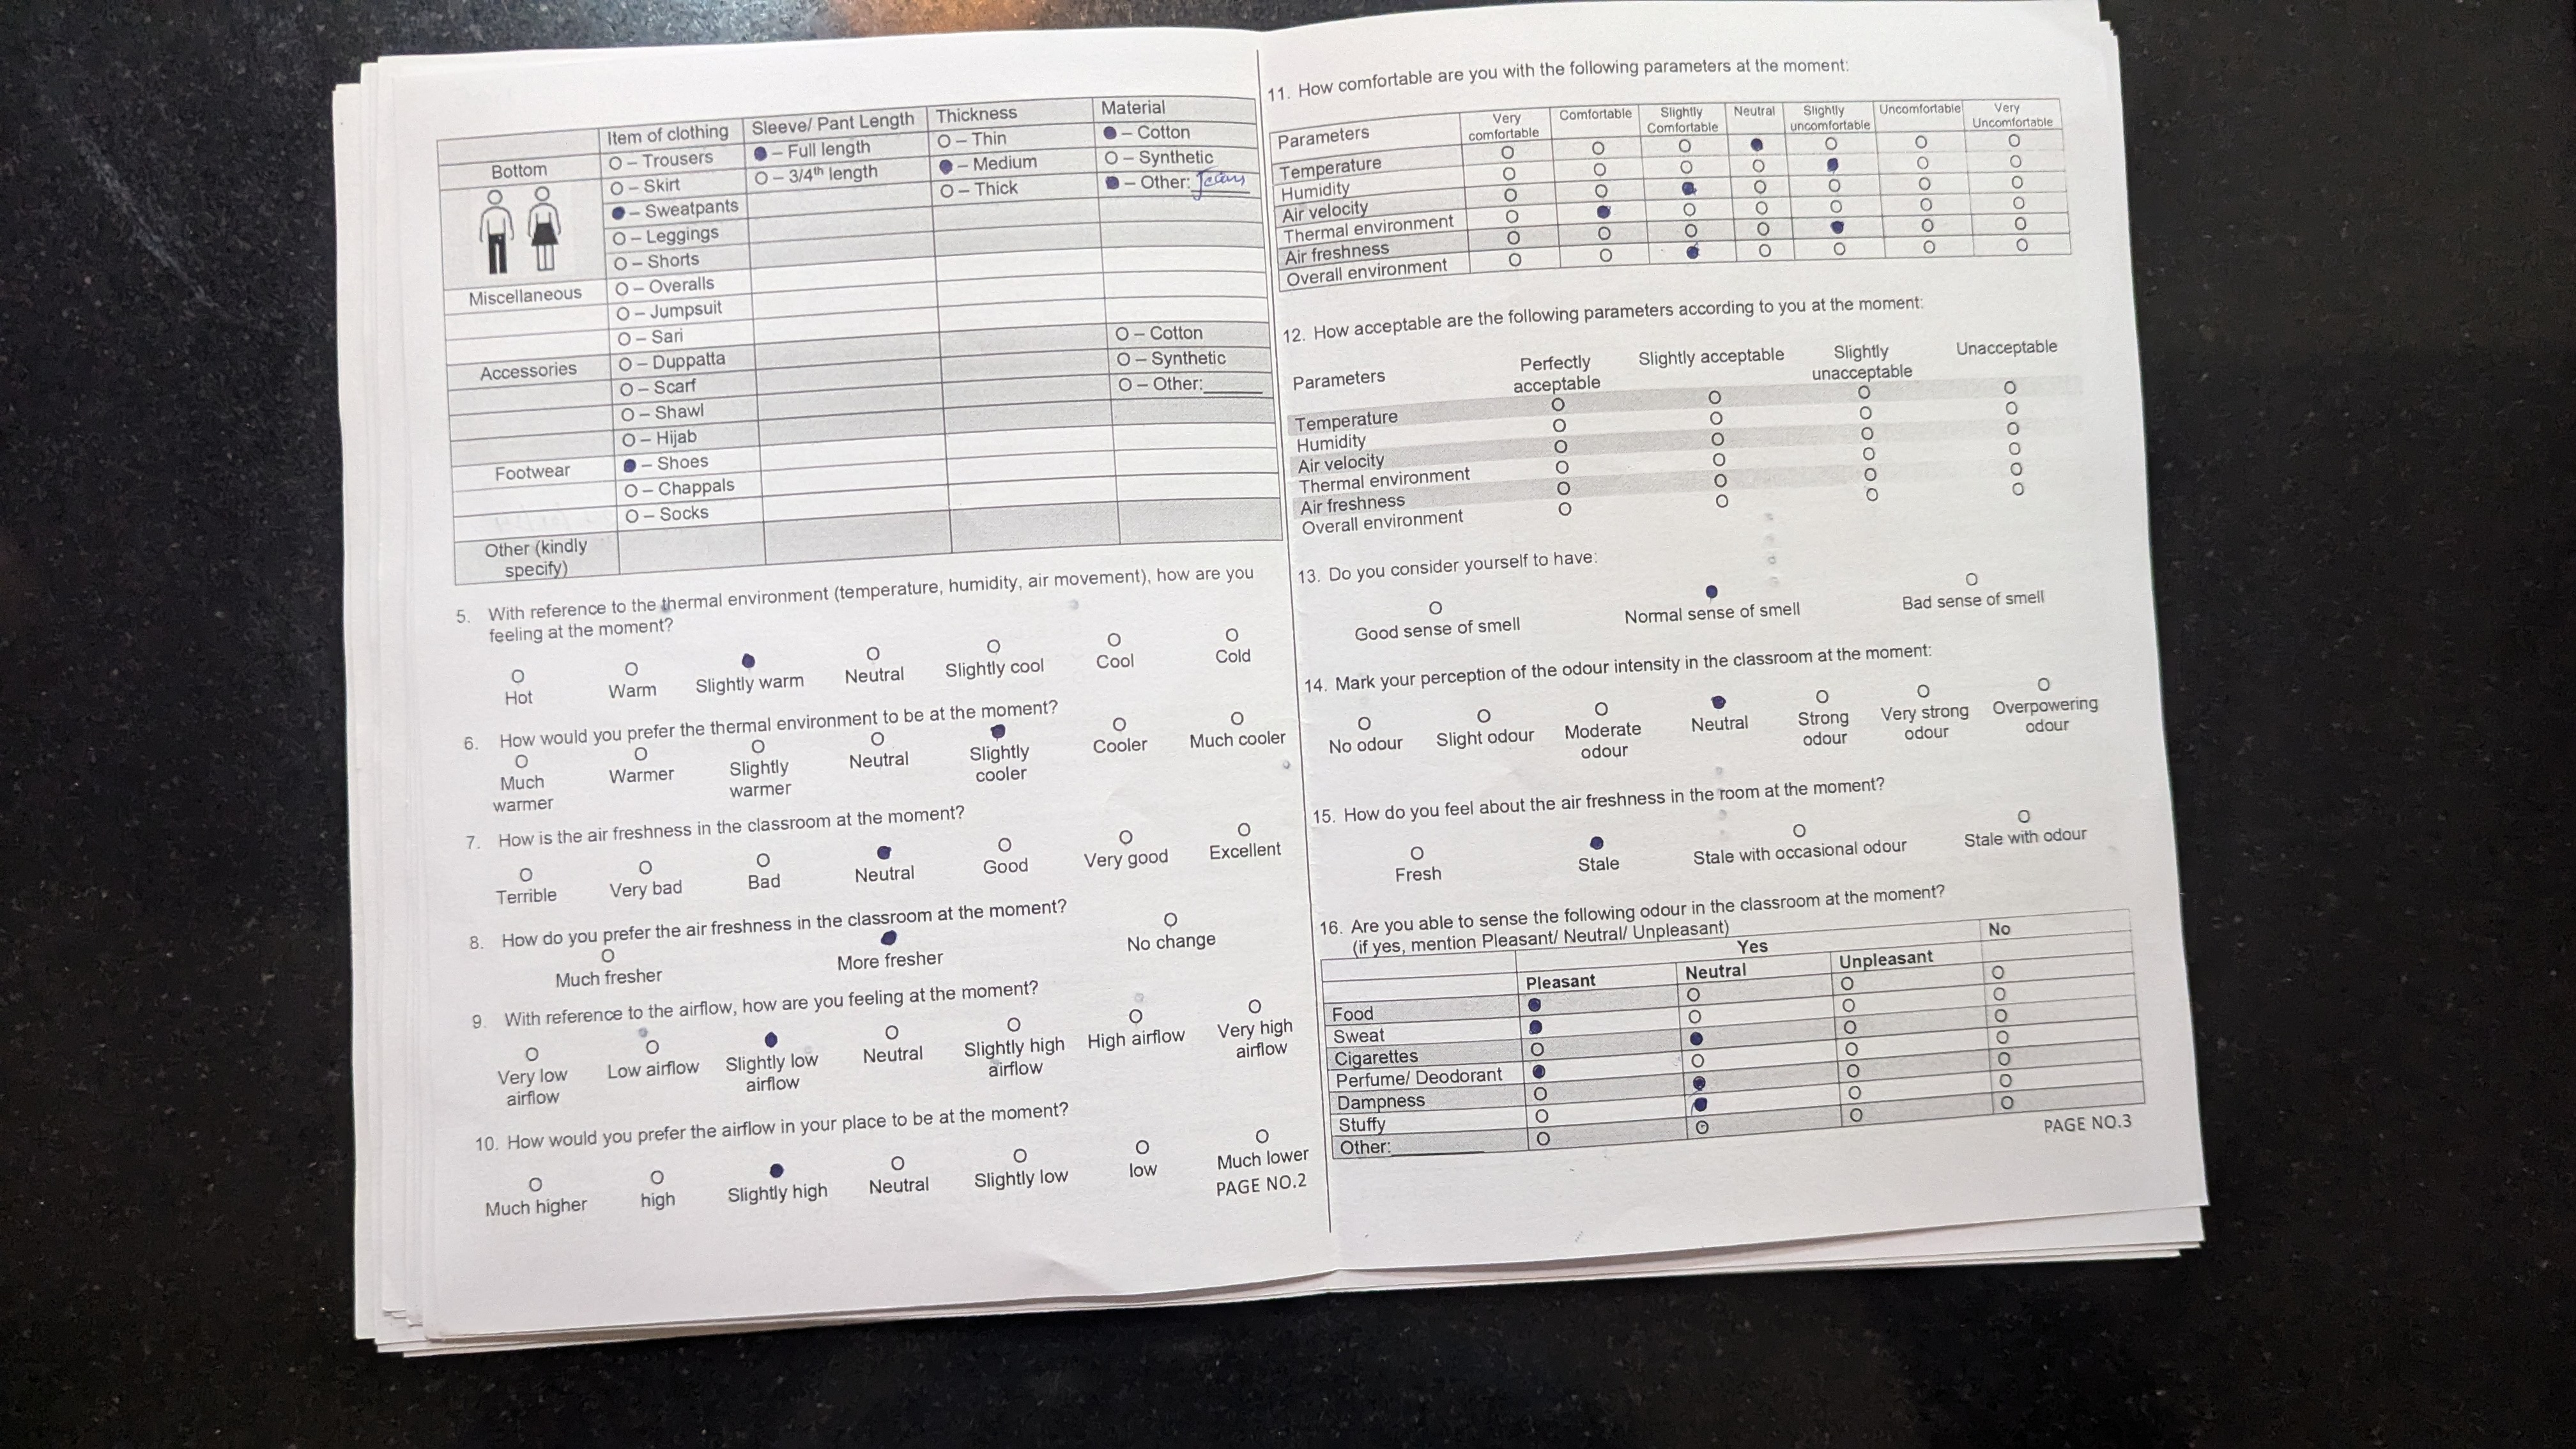 Item of clothing Sleeve/ Pant Length Thickness Material
Bottom O – Trousers ● – Full length O – Thin ● – Cotton
O – Skirt O – 3/4th length ● – Medium O – Synthetic
● – Sweatpants O – Thick ● – Other: Jeans
O – Leggings
O – Shorts
Miscellaneous O – Overalls
O – Jumpsuit
O – Sari O – Cotton
Accessories O – Duppatta O – Synthetic
O – Scarf O – Other:______
O – Shawl
O – Hijab
Footwear ● – Shoes
O – Chappals
O – Socks
Other (kindly
specify)
5. With reference to the thermal environment (temperature, humidity, air movement), how are you
feeling at the moment?
O O ● O O O O
Hot Warm Slightly warm Neutral Slightly cool Cool Cold
6. How would you prefer the thermal environment to be at the moment?
O O O O ● O O
Much Warmer Slightly Neutral Slightly Cooler Much cooler
warmer warmer cooler
7. How is the air freshness in the classroom at the moment?
O O O ● O O O
Terrible Very bad Bad Neutral Good Very good Excellent
8. How do you prefer the air freshness in the classroom at the moment?
O ● O
Much fresher More fresher No change
9. With reference to the airflow, how are you feeling at the moment?
O O ● O O O O
Very low Low airflow Slightly low Neutral Slightly high High airflow Very high
airflow airflow airflow airflow
10. How would you prefer the airflow in your place to be at the moment?
O O ● O O O O
Much higher high Slightly high Neutral Slightly low low Much lower
PAGE NO.2
11. How comfortable are you with the following parameters at the moment:
Parameters Very Comfortable Slightly Neutral Slightly Uncomfortable Very
comfortable Comfortable uncomfortable Uncomfortable
Temperature O O O ● O O O
Humidity O O O O ● O O
Air velocity O O ● O O O O
Thermal environment O ● O O O O O
Air freshness O O O O ● O O
Overall environment O O ● O O O O
12. How acceptable are the following parameters according to you at the moment:
Parameters Perfectly Slightly acceptable Slightly Unacceptable
acceptable unacceptable
Temperature O O O O
Humidity O O O O
Air velocity O O O O
Thermal environment O O O O
Air freshness O O O O
Overall environment O O O O
13. Do you consider yourself to have:
O ● O
Good sense of smell Normal sense of smell Bad sense of smell
14. Mark your perception of the odour intensity in the classroom at the moment:
O O O ● O O O
No odour Slight odour Moderate Neutral Strong Very strong Overpowering
odour odour odour odour
15. How do you feel about the air freshness in the room at the moment?
O ● O O
Fresh Stale Stale with occasional odour Stale with odour
16. Are you able to sense the following odour in the classroom at the moment?
(if yes, mention Pleasant/ Neutral/ Unpleasant)
Yes No
Pleasant Neutral Unpleasant
Food ● O O O
Sweat ● O O O
Cigarettes O ● O O
Perfume/ Deodorant ● O O O
Dampness O ● O O
Stuffy O ● O O
Other:__________ O O O O
PAGE NO.3